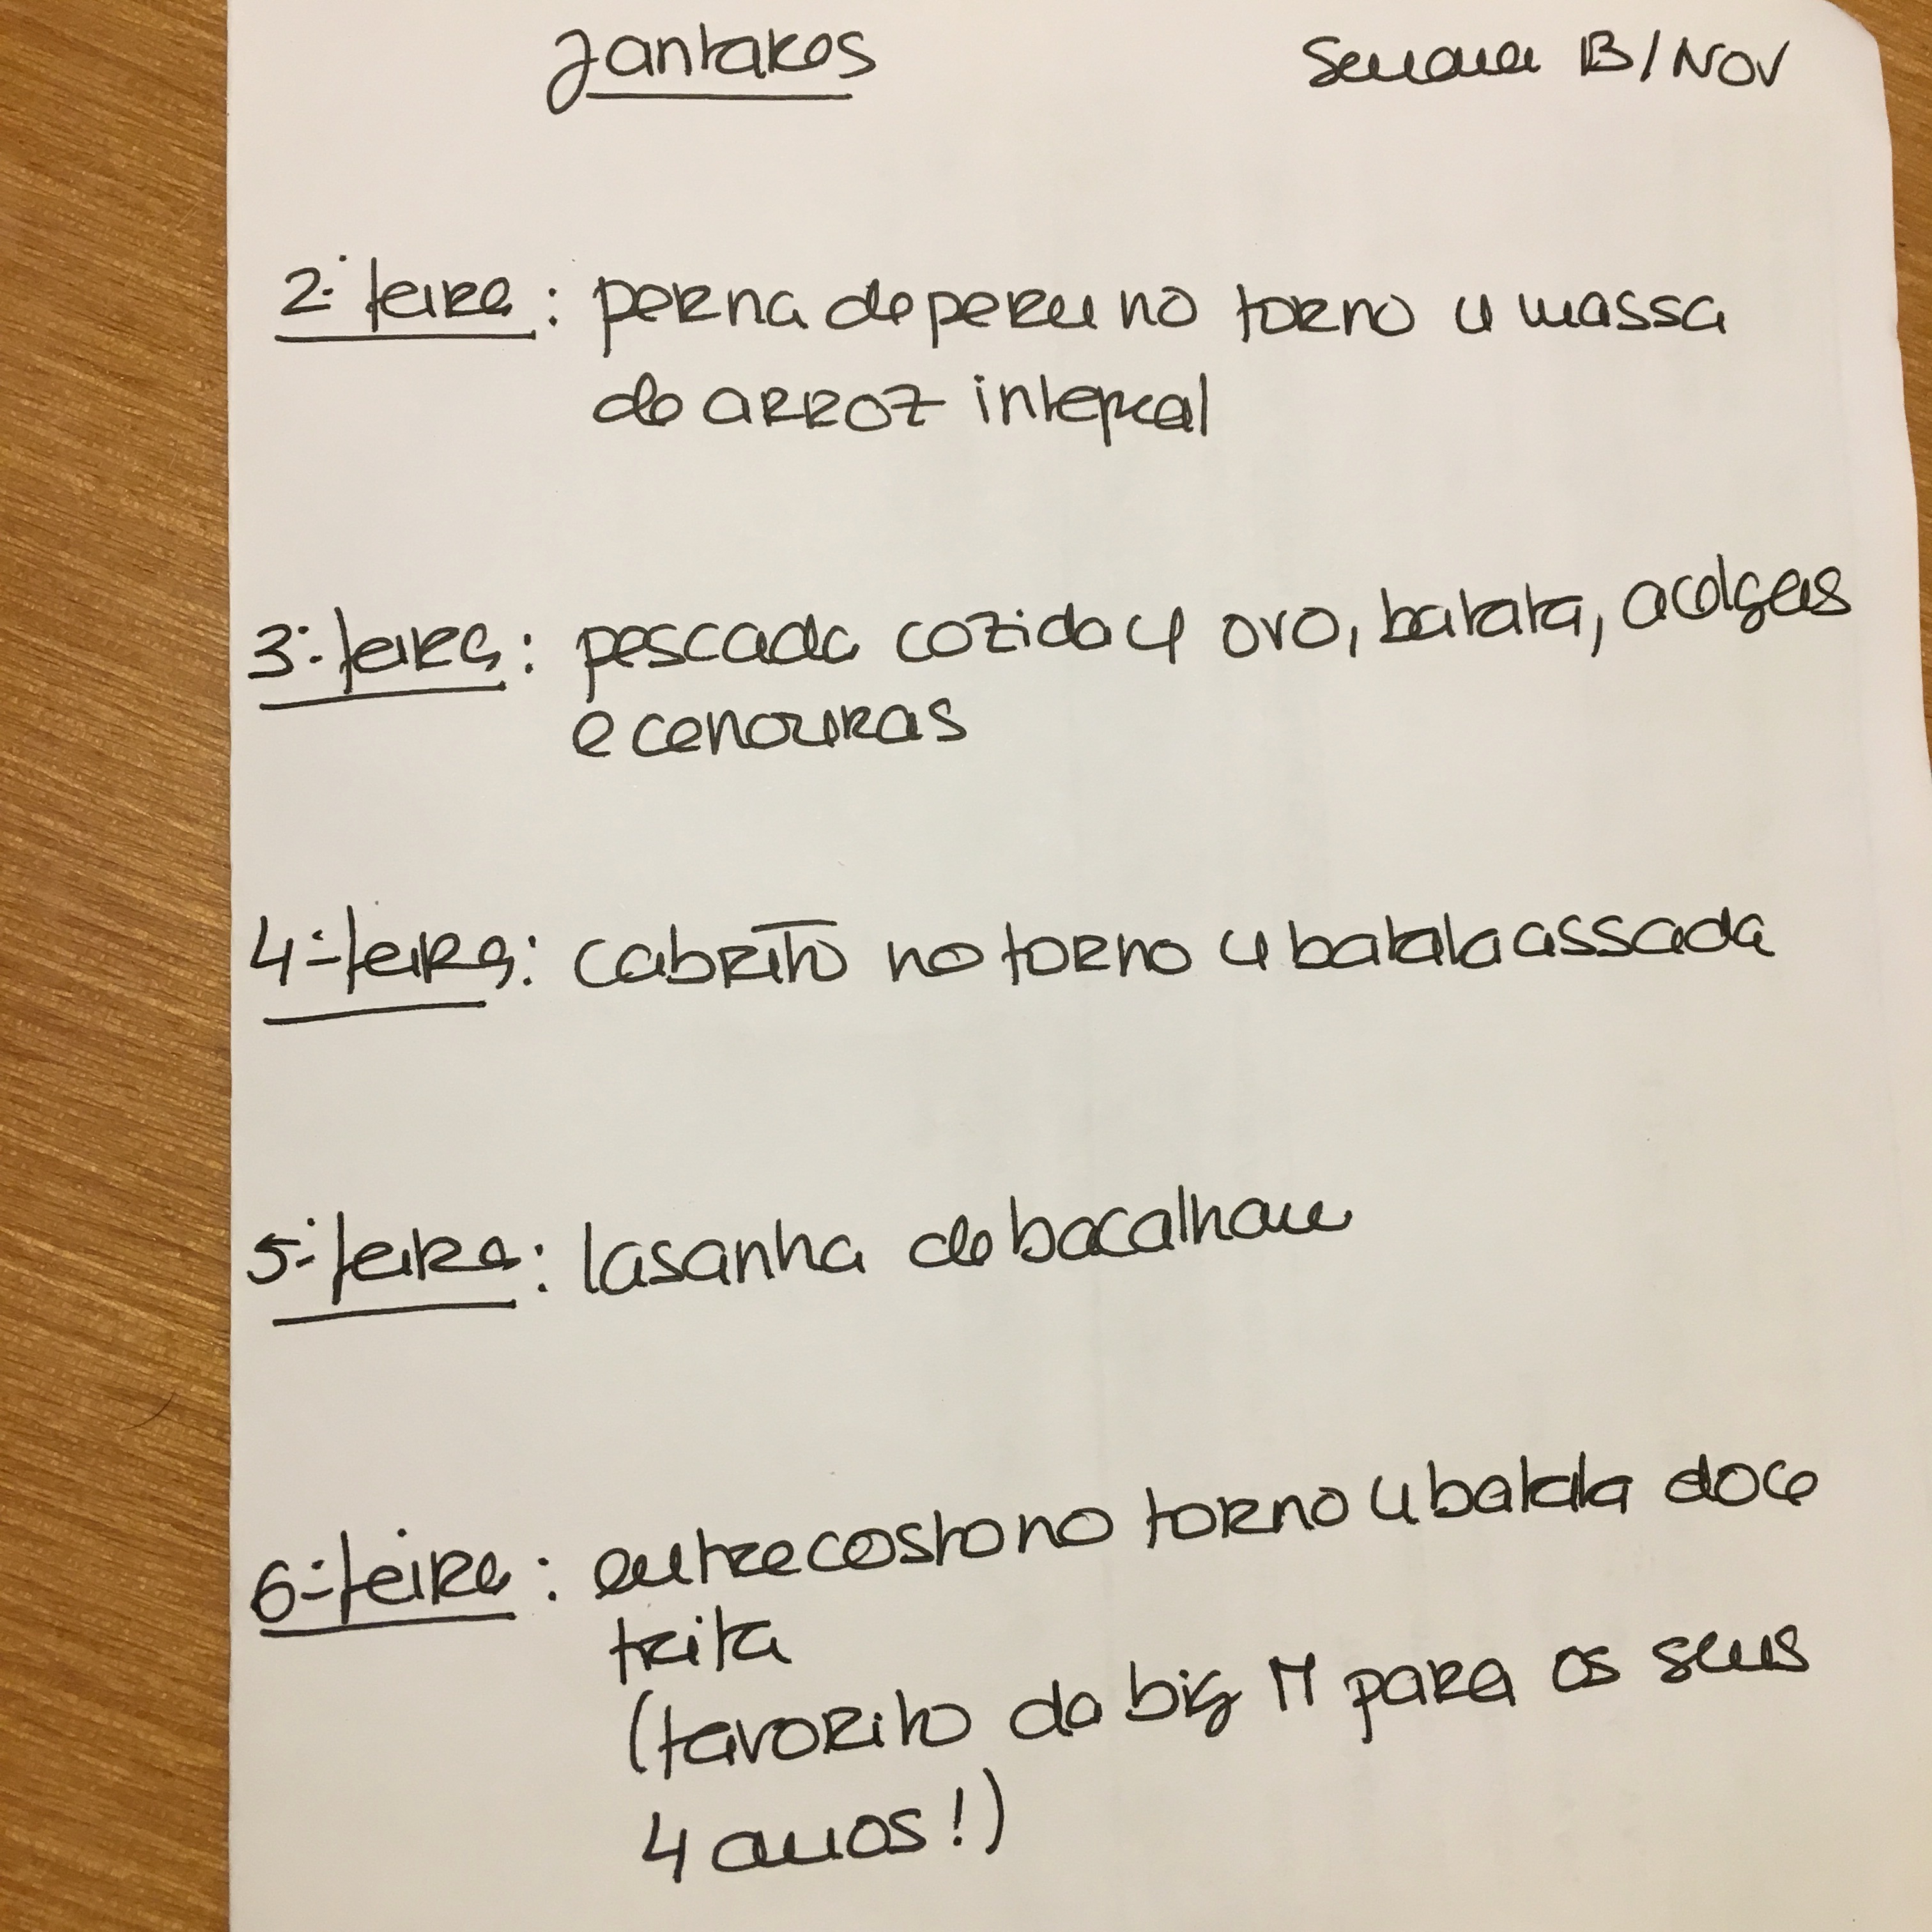 Jantares Semana 13/NOV
2ª feira: perna de peru no forno c/ massa
de arroz integral
3ª feira: pescada cozida c/ ovo, batata, acelgas
e cenouras
4ª feira: cabrito no forno c/ batata assada
5ª feira: lasanha de bacalhau
6ª feira: entrecosto no forno c/ batata doce
frita
(favorito do big M para os seus
4 anos!)